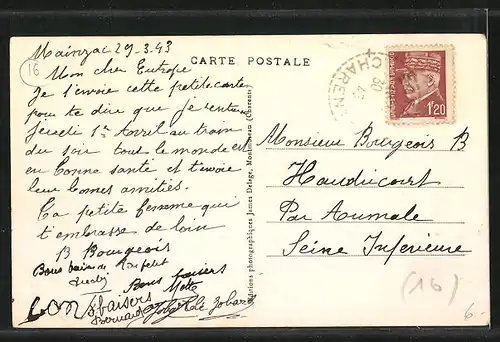 Mainzac 29-3.43
16
CARTE POSTALE
Mon cher Europe
Je t'envoie cette petite carte
pour te dire que je rentre
Jeudi 1er Avril au train
du soir tout le monde est
en bonne santé et t'envoie
leur bonnes amitiés.
Ta petite femme qui
t'embrasse de loin
B Bourgeois
Bons baisers de
Bons baisers
bons baisers
Bernard
CHARENTE
30
1f20
Monsieur Bourgeois B
Haudricourt
Par Aumale
Seine Inférieure
Editions photographiques James Delige, Montbron (Charente)
(16)
6.-